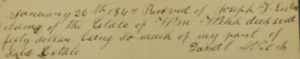 January 26th 1847 Received of Joseph T.
of the Estate of Wm Welch deceased
fifty dollars being so much of my part of
Said Estate Daniel Welch